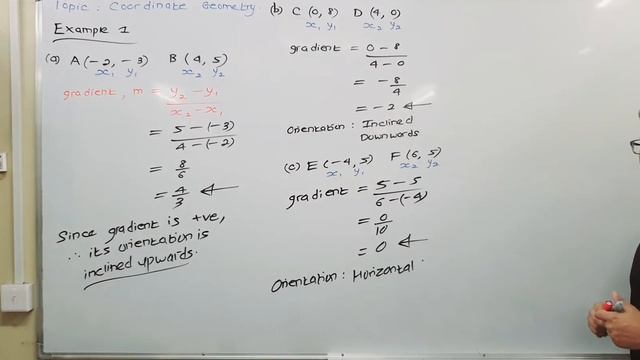 Topic : Coordinate Geometry.
Example 1
(a) A (-2, -3) B (4, 5)
x₁ y₁ x₂ y₂
gradient, m = y₂ - y₁ / x₂ - x₁
= 5 - (-3) / 4 - (-2)
= 8/6
= 4/3
Since gradient is +ve,
∴ its orientation is
inclined upwards.
(b) C (0, 8) D (4, 0)
x₁ y₁ x₂ y₂
gradient = 0 - 8 / 4 - 0
= - 8/4
= -2
Orientation : Inclined
Downwards
(c) E (-4, 5) F (6, 5)
x₁ y₁ x₂ y₂
gradient = 5 - 5 / 6 - (-4)
= 0/10
= 0
Orientation : Horizontal.